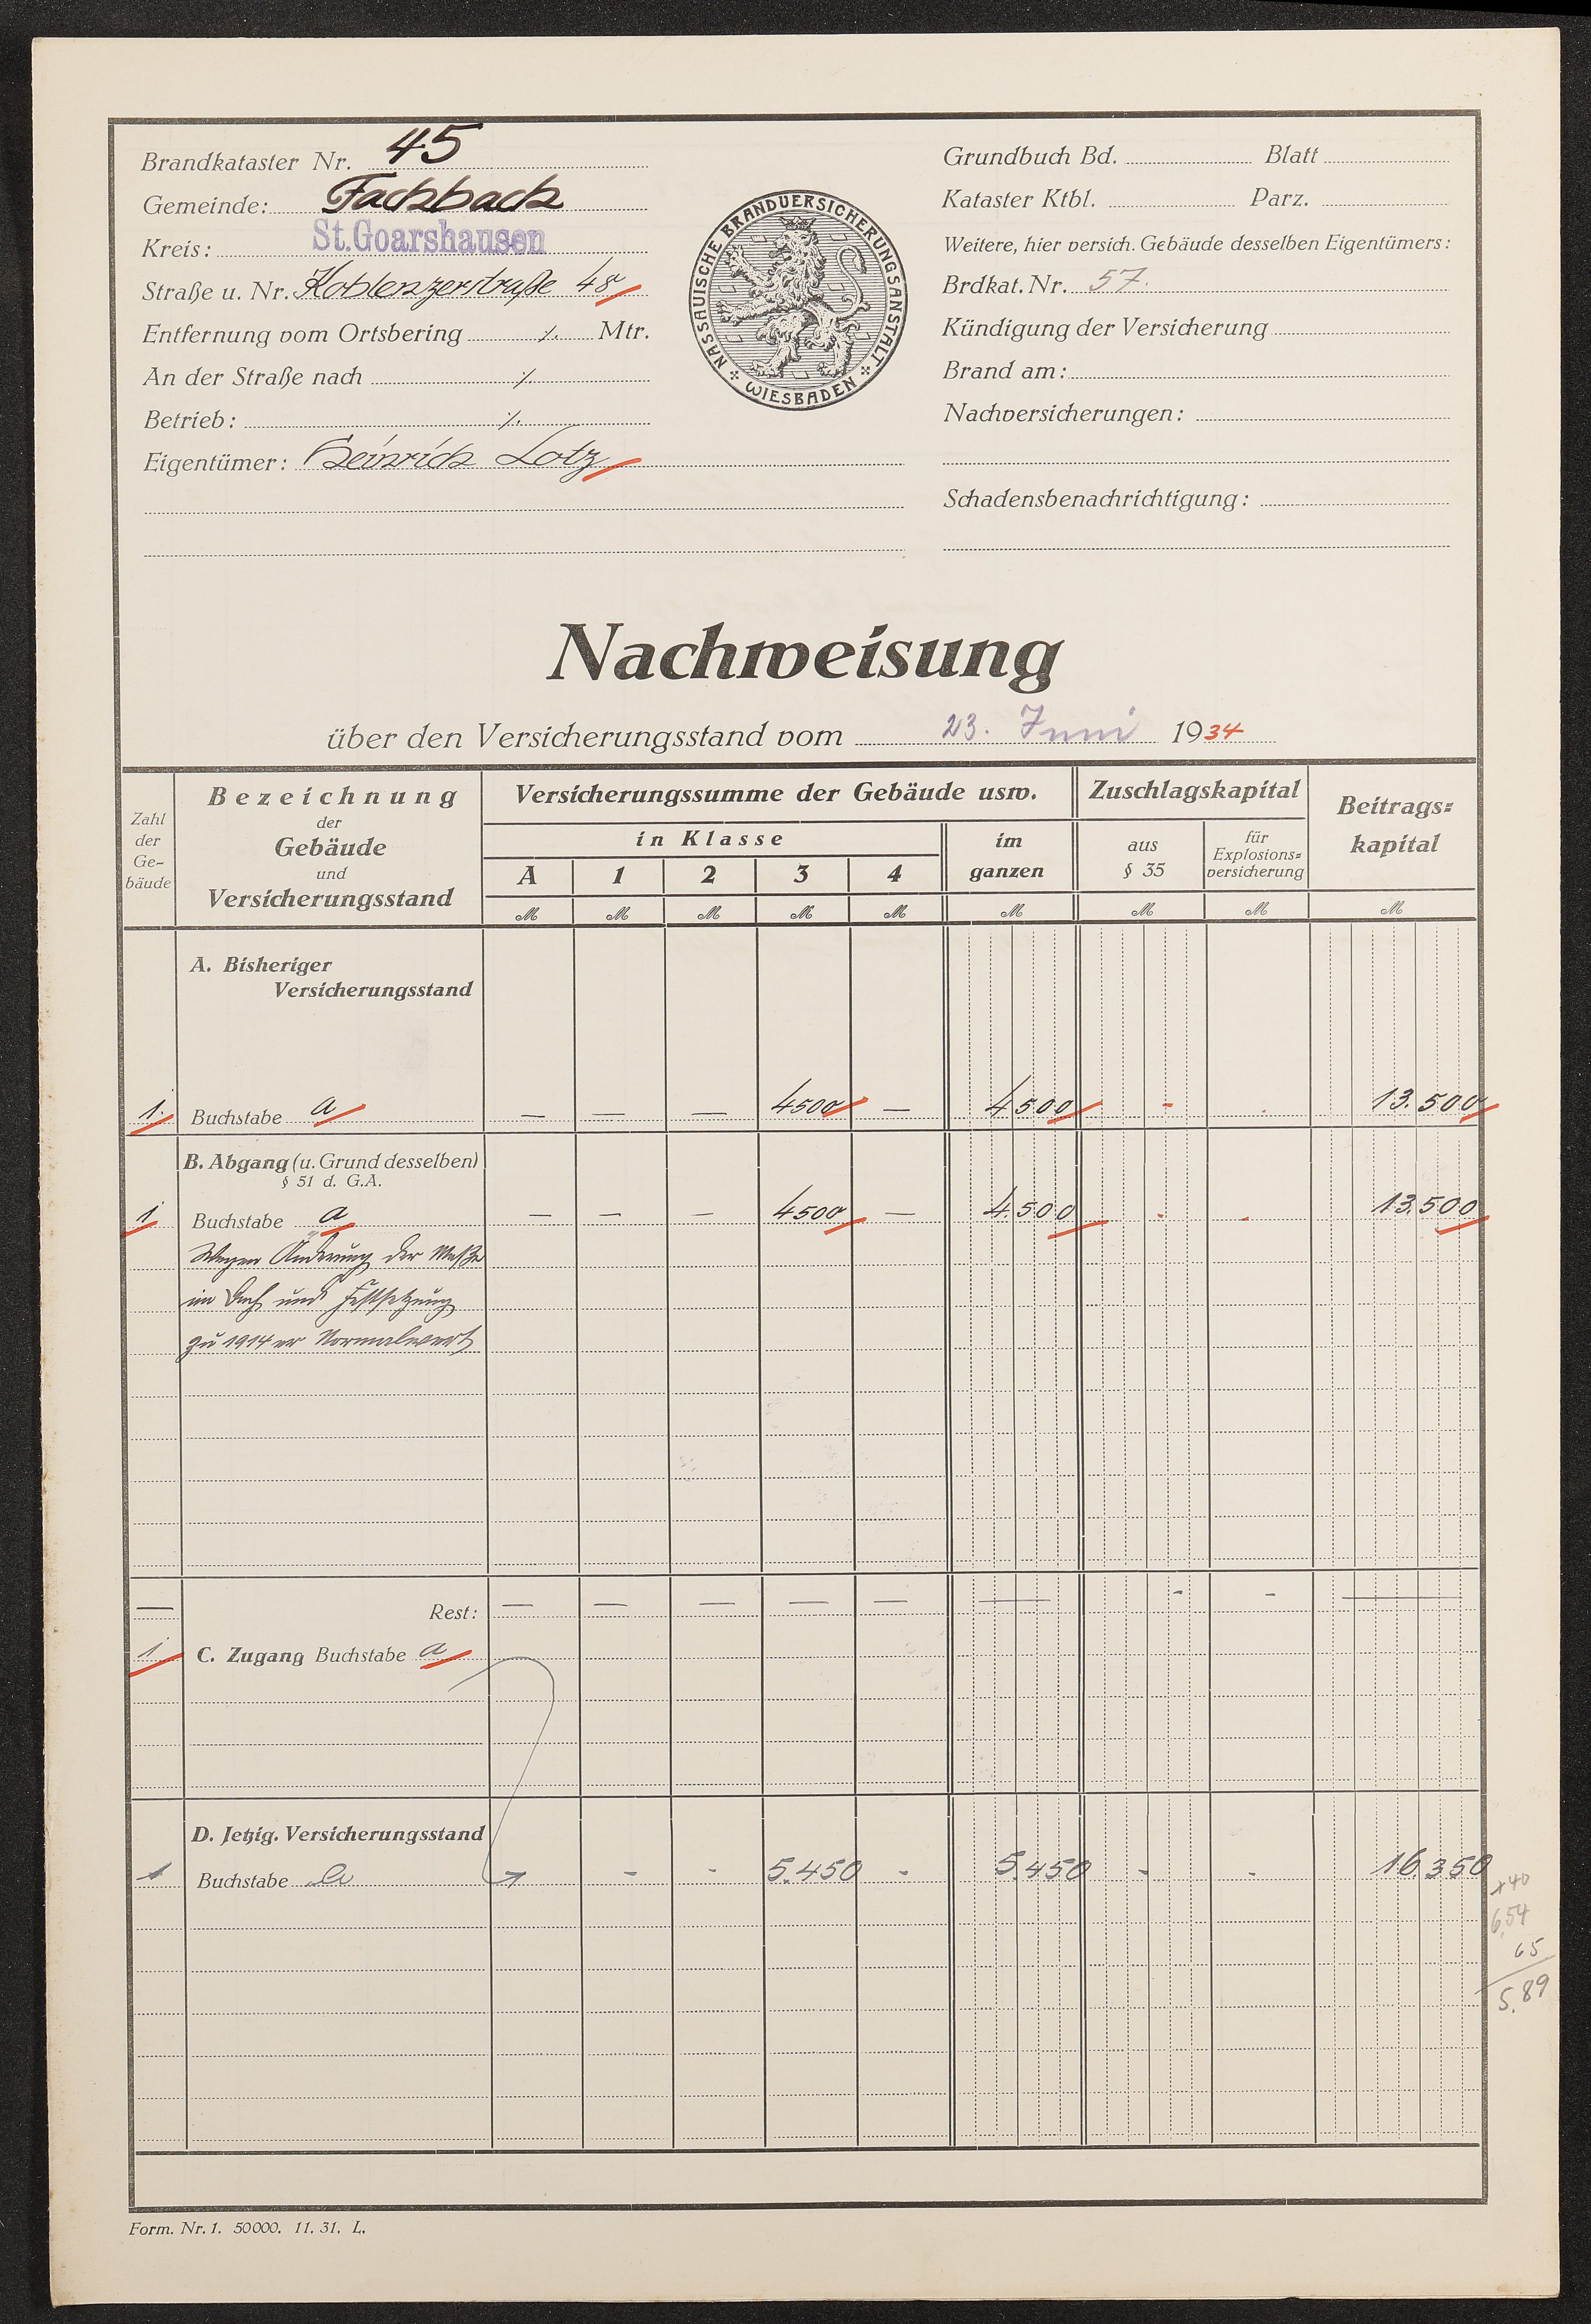 Brandkataster Nr. 45
Gemeinde: Fachbach
Kreis: St.Goarshausen
Straße u. Nr. Koblenzerstraße 48
Entfernung vom Ortsbering ⁒ Mtr.
An der Straße nach ⁒
Betrieb: ⁒
Eigentümer: Heinrich Lotz
NASSAUISCHE BRANDVERSICHERUNGSANSTALT
WIESBADEN
Grundbuch Bd. Blatt
Kataster Ktbl. Parz.
Weitere, hier versich. Gebäude desselben Eigentümers:
Brdkat. Nr. 57.
Kündigung der Versicherung
Brand am:
Nachversicherungen:
Schadensbenachrichtigung:
Nachweisung
über den Versicherungsstand vom 23. Juni 1934
Zahl der Ge-bäude
Bezeichnung der Gebäude und Versicherungsstand
Versicherungssumme der Gebäude usw.
Zuschlagskapital
Beitrags-kapital
in Klasse
im ganzen
aus § 35
für Explosions-versicherung
A 1 2 3 4
M M M M M M M M M
A. Bisheriger
Versicherungsstand
1. Buchstabe a — — — 4500 — 4500 - . 13.500
B. Abgang (u. Grund desselben)
§ 51 d. G.A.
1 Buchstabe a — — — 4500 — 4.500 . . 13.500
Wegen Änderung der Maße
im Dach und Festsetzung
zu 1914er Normalwert
— Rest: — — — — — — - - —
1 C. Zugang Buchstabe a
D. Jetzig. Versicherungsstand
1 Buchstabe a - - - 5.450 - 5.450 - - 16.350
x 40
6,54
65
5.89
Form. Nr. 1. 50000. 11. 31. L.